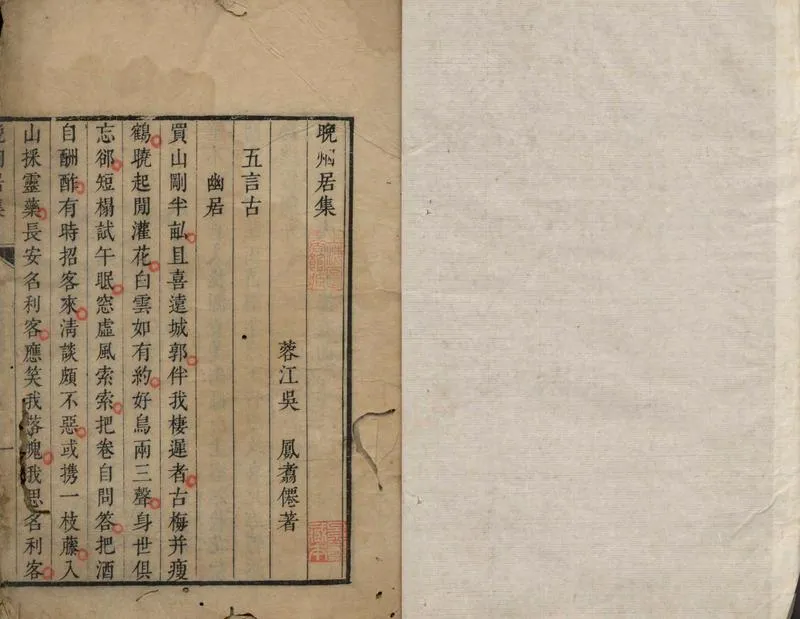 晚烟居集
蓉江吳　鳳翥僊著
五言古
幽居
買山剛半畝且喜遠城郭伴我棲遲者古梅并瘦
鶴曉起閒灌花白雲如有約好鳥兩三聲身世俱
忘郤短榻試午眠窓虛風索索把卷自問答把酒
自酬酢有時招客來清談頗不惡或携一枝藤入
山採靈藥長安名利客應笑我落魄我思名利客